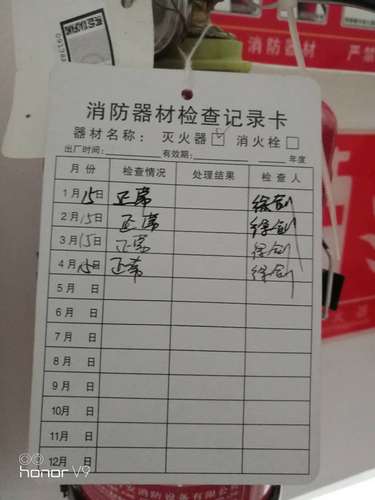 091382
消防器材
严禁
消防器材检查记录卡
器材名称: 灭火器☑ 消火栓□
出厂时间: 有效期: 年度
月份 检查情况 处理结果 检查人
1月15日 正常 徐剑
2月15日 正常 徐剑
3月15日 正常 徐剑
4月15日 正常 徐剑
5月 日
6月 日
7月 日
8月 日
9月 日
10月 日
11月 日
12月 日
安消防设备有限公
honor V9